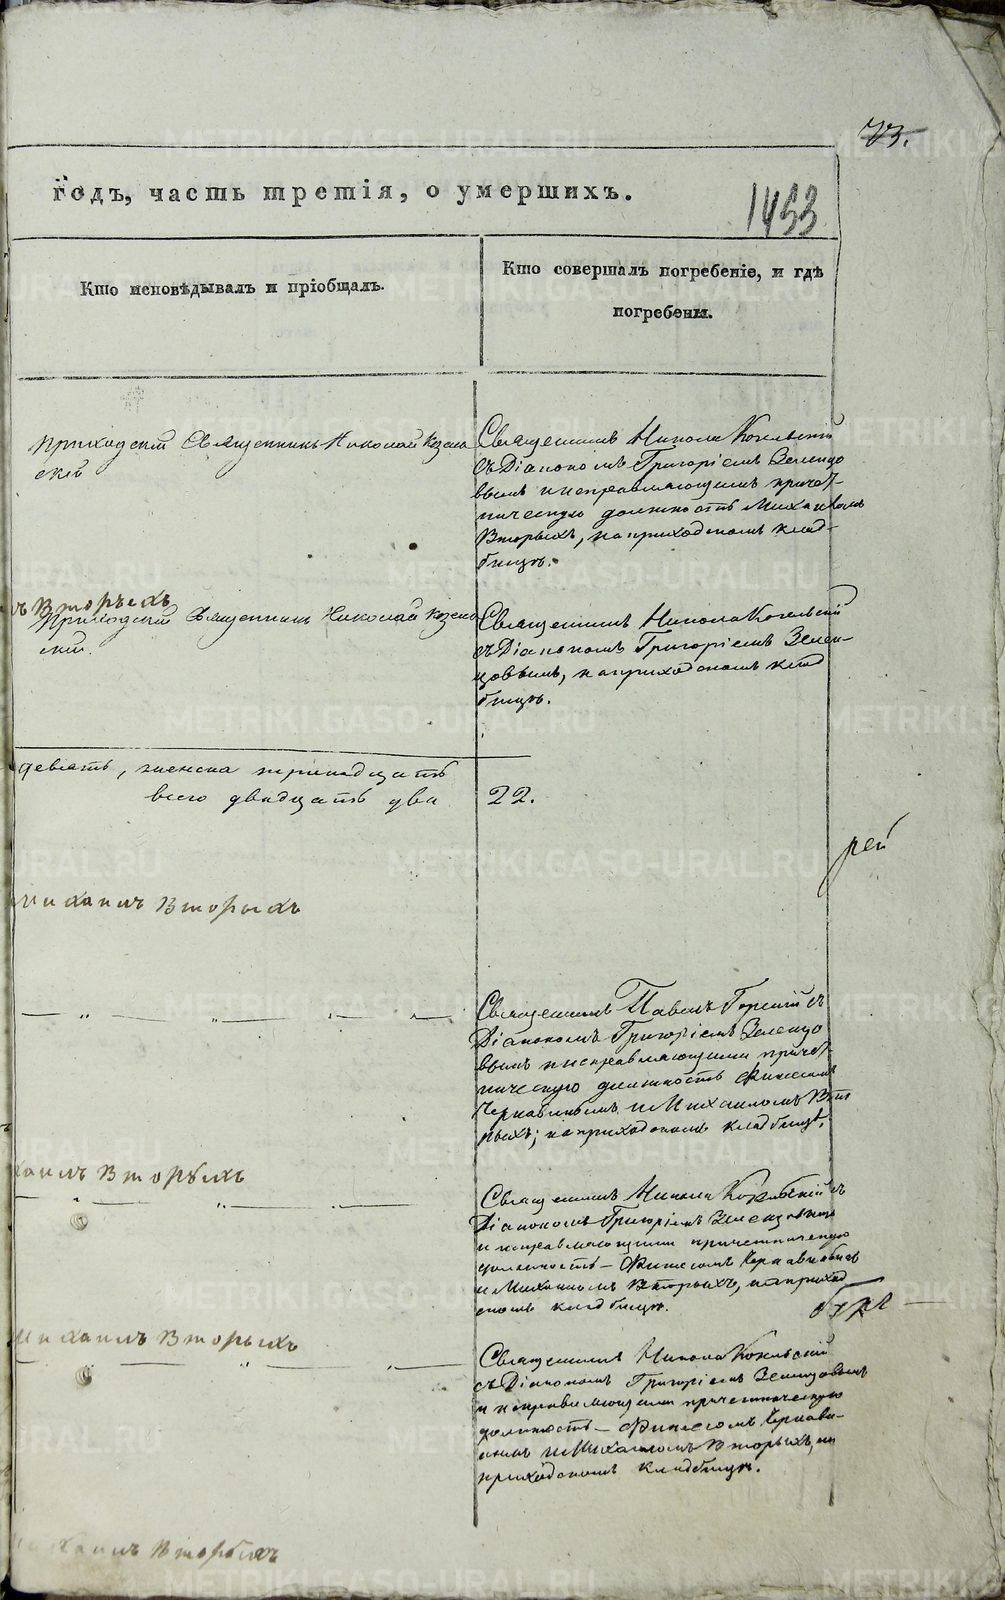 73.
годъ, часть третія, о умершихъ.
1453
Кто исповѣдывалъ и пріобщалъ.
Кто совершалъ погребеніе, и гдѣ
погребены.
Приходскій Священникъ Николай Козель
скій
Священникъ Никола Козельскій
съ Діакономъ Григоріемъ Зеленцо
вымъ и исправляющимъ причет-
ническую должность Михаиломъ
Вторыхъ, на приходскомъ клад-
бищѣ.
ъ Вторыхъ
Приходскій Священникъ Николай Козель
скій.
Священникъ Никола Козельскій
съ Діакономъ Григоріемъ Зелен-
цовымъ, на приходскомъ клад
бищѣ.
девять, женска тринадцать
всего двадцать два
22.
рей
Михаилъ Вторыхъ
Священникъ Павелъ Горскій съ
Діакономъ Григоріемъ Зеленцо
вымъ и исправляющими причет-
ническую должность Финеесомъ
и Михаиломъ Вто
рыхъ; на приходскомъ кладбищѣ.
хаилъ Вторыхъ
Священникъ Никола Козельскій съ
Діакономъ Григоріемъ Зеленцовымъ
и исправляющими причетническую
должность – Финеесомъ
и Михаиломъ Вторыхъ, на приход
скомъ кладбищѣ.
Михаилъ Вторыхъ
Священникъ Никола Козельскій
съ Діакономъ Григоріемъ Зеленцовымъ
и исправляющими причетническую
должность – Финеесомъ
и Михаиломъ Вторыхъ, на
приходскомъ кладбищѣ.
Михаилъ Вторыхъ
METRIKI.GASO-URAL.RU